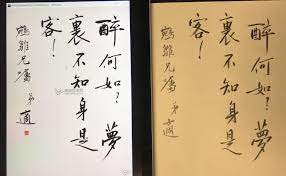 醉何如?夢
裏不知身是
客!
雛兄
弟 適
醉何如?夢
裏不知身是
客!
雛兄
弟 適